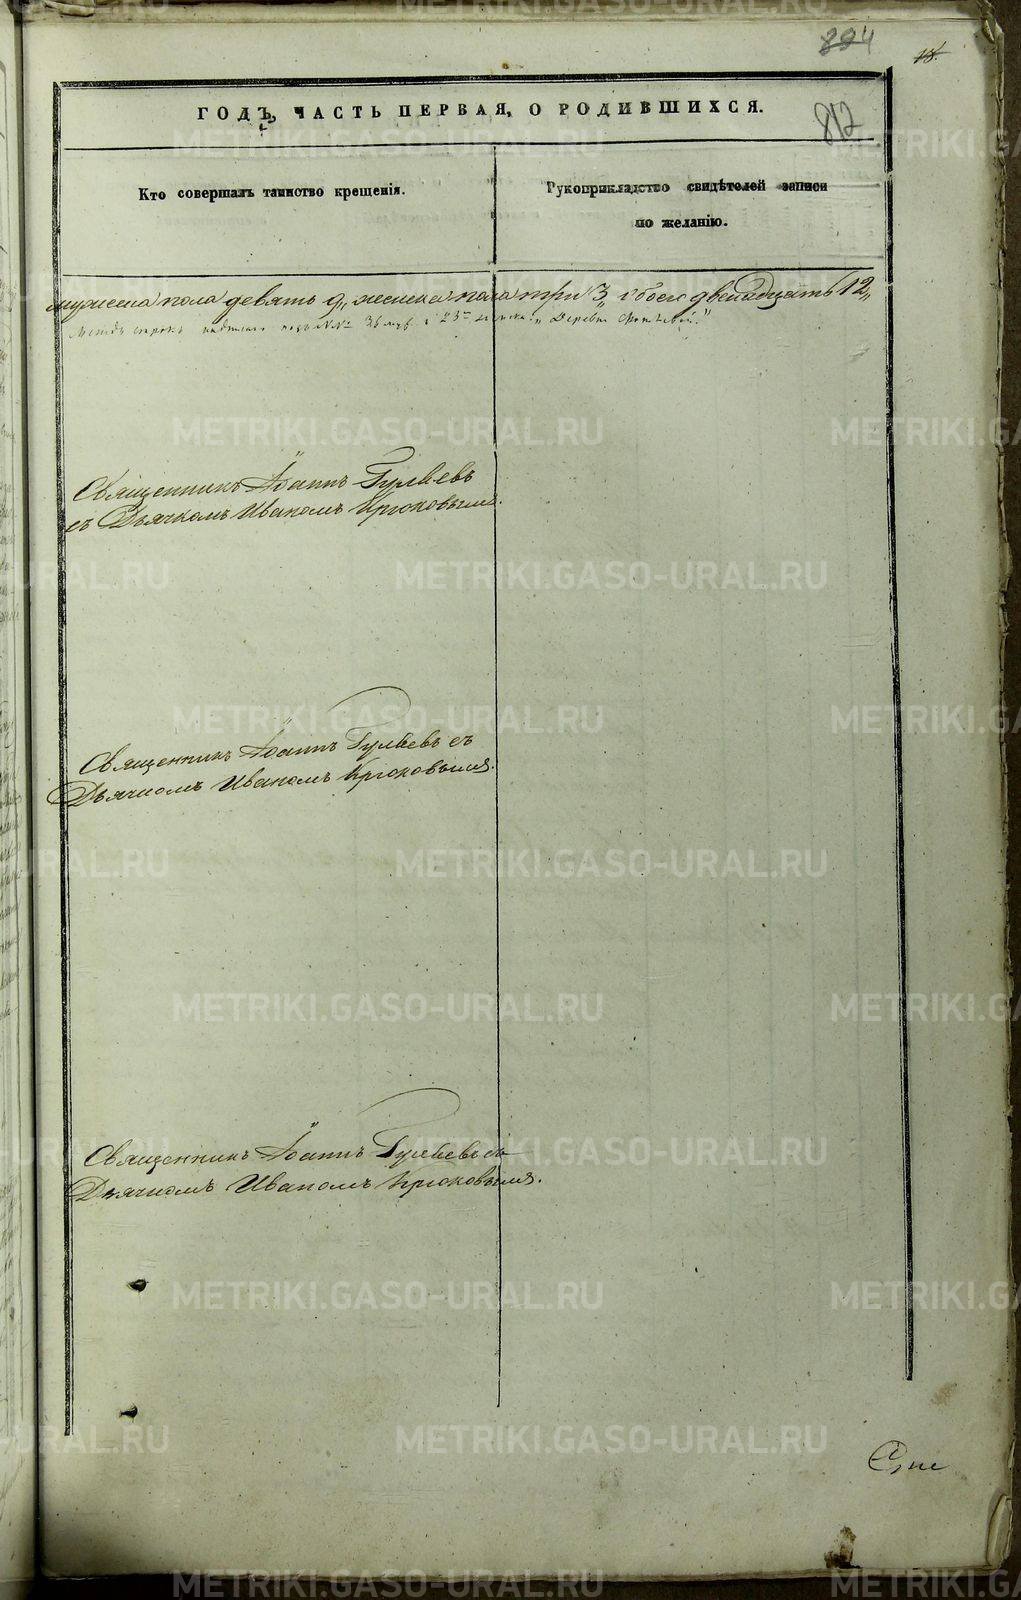 824
18.
ГОДЪ, ЧАСТЬ ПЕРВАЯ, О РОДИВШИХСЯ.
812
Кто совершалъ таинство крещенія.
Рукоприкладство свидѣтелей записи
по желанію.
мужеска пола девять 9, женска пола три 3, обоего двенадцать 12,,
Между строкъ подъ №№ 36 и 23 Деревни
Священникъ Іоаннъ Гуляевъ
съ Дьячкомъ Иваномъ Крюковымъ.
Священникъ Іоаннъ Гуляевъ съ
Дьячкомъ Иваномъ Крюковымъ.
Священникъ Іоаннъ Гуляевъ съ
Дьячкомъ Иваномъ Крюковымъ.
METRIKI.GASO-URAL.RU